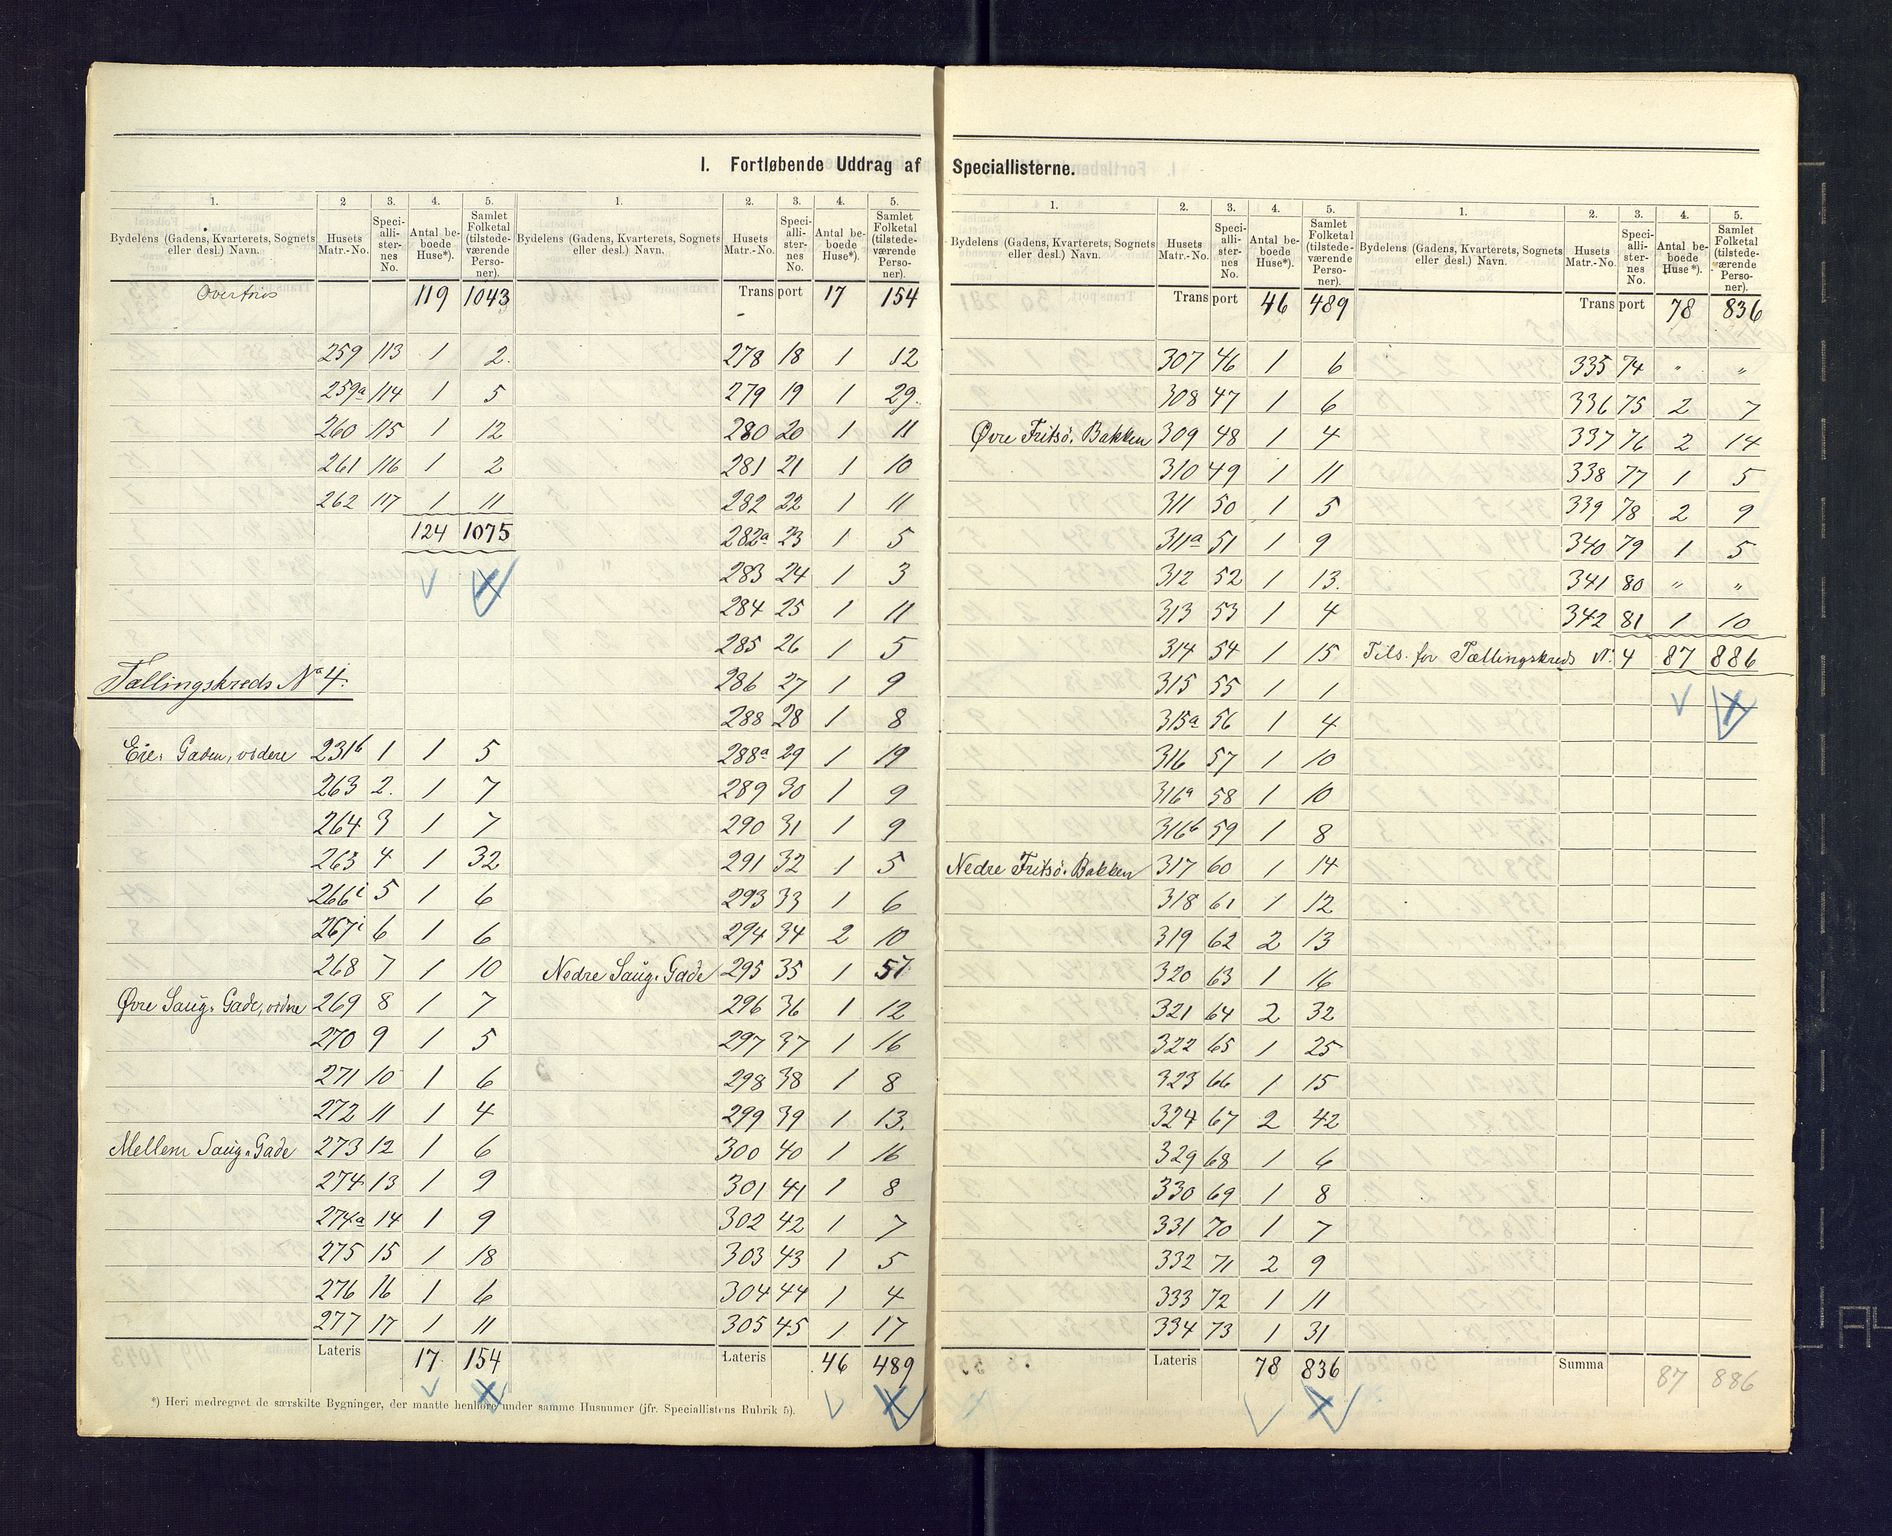 I. Fortløbende Uddrag af Speciallisterne.
1. 2 3. 4. 5. 1. 2. 3. 4. 5.
Bydelens (Gadens, Kvarterets, Sognets eller desl.) Navn. Husets Matr.-No. Speciallisternes No. Antal beboede Huse*). Samlet Folketal (tilstedeværende Personer).
Bydelens (Gadens, Kvarterets, Sognets eller desl.) Navn. Husets Matr.-No. Speciallisternes No. Antal beboede Huse*). Samlet Folketal (tilstedeværende Personer).
119 1043
259 113 1 2.
259a 114 1 5
260 115 1 12
261 116 1 2
262 117 1 11
124 1075
Tællingskreds No 4.
Eie. Gaden, videre 231b 1 1 5
263 2. 1 7
264 3 1 7
263 4 1 32
266i 5 1 6
267i 6 1 6
268 7 1 10
Øvre Saug. Gade, videre 269 8 1 7
270 9 1 5
271 10 1 6
272 11 1 4
Mellem Saug. Gade 273 12 1 6
274 13 1 9
274a 14 1 9
275 15 1 18
276 16 1 6
277 17 1 11
Lateris 17 154
Transport 17 154
278 18 1 12
279 19 1 29.
280 20 1 11
281 21 1 10
282 22 1 11
282a 23 1 5
283 24 1 3
284 25 1 11
285 26 1 5
286 27 1 9
288 28 1 8
288a 29 1 19
289 30 1 9
290 31 1 9
291 32 1 5
293 33 1 6
294 34 2 10
Nedre Saug. Gade 295 35 1 57
296 36 1 12
297 37 1 16
298 38 1 8
299 39 1 13.
300 40 1 16
301 41 1 8
302 42 1 7
303 43 1 5
304 44 1 4
305 45 1 17
Lateris 46 489
*) Heri medregnet de særskilte Bygninger, der maatte henhøre under samme Husnumer (jfr. Speciallistens Rubrik 5).
1. 2. 3. 4. 5. 1. 2. 3. 4. 5.
Bydelens (Gadens, Kvarterets, Sognets eller desl.) Navn. Husets Matr.-No. Speciallisternes No. Antal beboede Huse*). Samlet Folketal (tilstedeværende Personer).
Bydelens (Gadens, Kvarterets, Sognets eller desl.) Navn. Husets Matr.-No. Speciallisternes No. Antal beboede Huse*). Samlet Folketal (tilstedeværende Personer).
Transport 46 489
307 46 1 6
308 47 1 6
Øvre Fritsø. Bakken 309 48 1 4
310 49 1 11
311 50 1 5
311a 51 1 9
312 52 1 13.
313 53 1 4
314 54 1 15
315 55 1 1
315a 56 1 4
316 57 1 10
316a 58 1 10
316b 59 1 8
Nedre Fritsø. Bakken 317 60 1 14
318 61 1 12
319 62 2 13
320 63 1 16
321 64 2 32
322 65 1 25
323 66 1 15
324 67 2 42
329 68 1 6
330 69 1 8
331 70 1 7
332 71 2 9
333 72 1 11
334 73 1 31
Lateris 78 836
Transport 78 836
335 74 " "
336 75 2 7
337 76 2 14
338 77 1 5
339 78 2 9
340 79 1 5
341 80 " "
342 81 1 10
Tils. for Tællingskreds N. 4 87 886
Summa 87 886